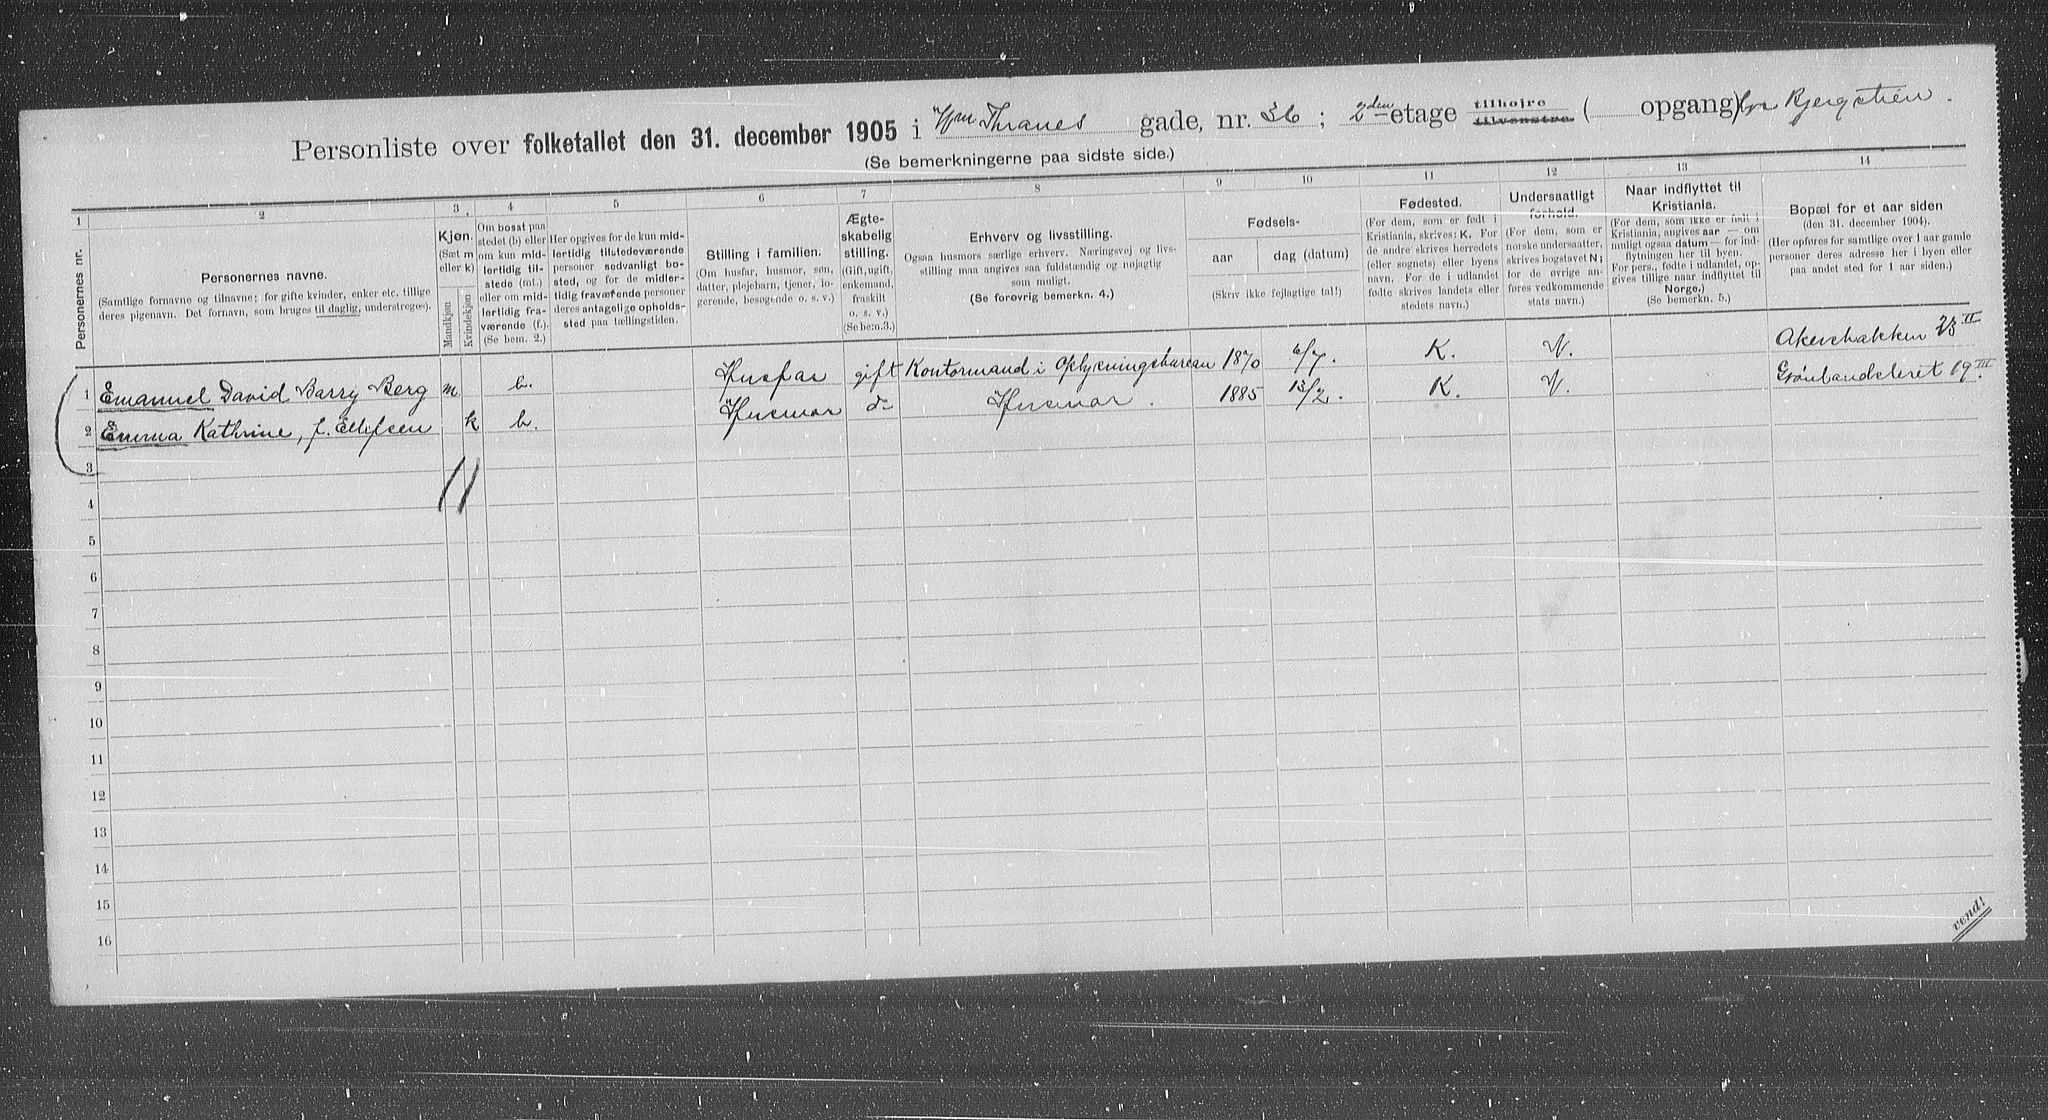 Personliste over folketallet den 31. december 1905 i Hjm Thranes gade, nr. 36; 2den etage tilhøjre tilvenstre ( opgang)
(Se bemerkningerne paa sidste side.)
1 2 3. 4 5 6 7 8 9 10 11 12 13 14
Personernes nr.
Personernes navne.
(Samtlige fornavne og tilnavne; for gifte kvinder, enker etc. tillige
deres pigenavn. Det fornavn, som bruges til daglig, understreges).
Kjøn.
(Sæt m
eller k)
Mandkjøn
Kvindekjøn
Om bosat paa
stedet (b) eller
om kun mid-
lertidig til-
stede (mt.)
eller om mid-
lertidig fra-
værende (f.).
(Se bem. 2.)
Her opgives for de kun mid-
lertidig tilstedeværende
personer sedvanligt bo-
sted, og for de midler-
tidig fraværende personer
deres antagelige opholds-
sted paa tællingstiden.
Stilling i familien.
(Om husfar, husmor, søn,
datter, plejebarn, tjener, lo-
gerende, besøgende o. s. v.)
Ægte-
skabelig
stilling.
(Gift, ugift,
enkemand,
fraskilt
o. s. v.)
(Se bem.3.)
Erhverv og livsstilling.
Ogsaa husmors særlige erhverv. Næringsvej og livs-
stilling maa angives saa fuldstændig og nøjagtig
som muligt.
(Se forøvrig bemerkn. 4.)
Fødsels-
aar
dag (datum)
(Skriv ikke fejlagtige tal!)
Fødested.
(For dem, som er født i
Kristiania, skrives: K. For
de andre skrives herredets
(eller sognets) eller byens
navn. For de i udlandet
fødte skrives landets eller
stedets navn.)
Undersaatligt
forhold.
(For dem, som er
norske undersaatter,
skrives bogstavet N;
for de øvrige an-
føres vedkommende
stats navn.)
Naar indflyttet til
Kristiania.
(For dem, som ikke er født i
Kristiania, angives aar — om
muligt ogsaa datum — for ind-
flytningen her til byen.
For pers., fødte i udlandet, op-
gives tillige naar indflyttet til
Norge.)
(Se bemerkn. 5.)
Bopæl for et aar siden
(den 31. december 1904).
(Her opføres for samtlige over 1 aar gamle
personer deres adresse her i byen eller
paa andet sted for 1 aar siden.)
1 Emanuel David Barry Berg m b. Husfar gift Kontormand i Oplysningsbureau 1870 6/7. K. N. Akersbakken 23 II
2 Emma Kathrine, f. Ellefsen k b. Husmor do Husmor. 1885 13/2. K. N. Grønlandsleret 19 III.
3
4
5
6
7
8
9
10
11
12
13
14
15
16
vend!